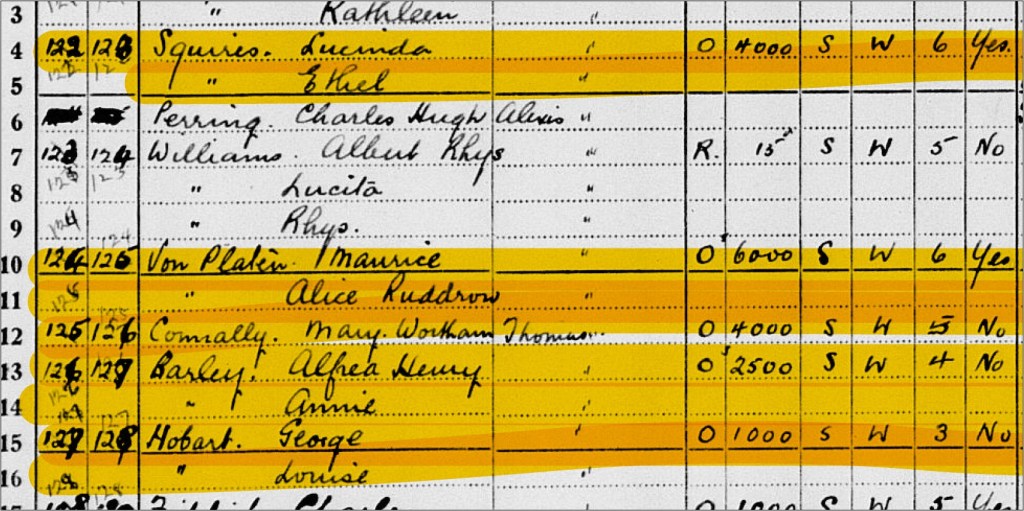 3 " Kathleen "
4 122 123 Squires. Lucinda " O 4000 S W 6 Yes.
5 " Ethel "
6 Perring. Charles Hugh Alexis "
7 123 124 Williams. Albert Rhys " R. 15 S W 5 No
8 " Lucita "
9 " Rhys. "
10 124 125 Von Platen. Maurice " O 6000 S W 6 Yes
11 " Alice Ruddrow "
12 125 126 Connally. Mary. Wortham Thomas " O 4000 S W 5 No
13 126 127 Barley. Alfred Henry " O 2500 S W 4 No
14 " Annie "
15 127 128 Hobart. George " O 1000 S W 3 No
16 " Louise "
S W 5 Yes